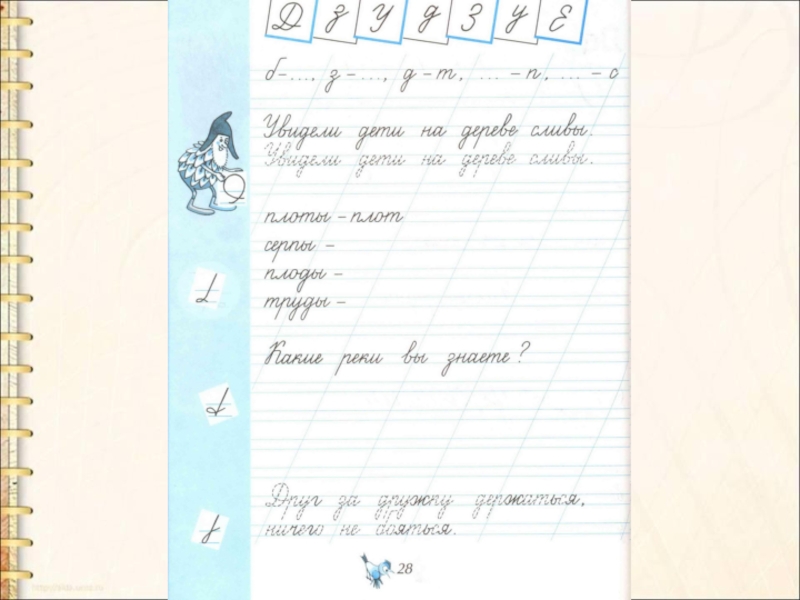 Д З У д З у Е
б-..., з-..., д-т, ...-п, ...-с
Увидели дети на дереве сливы.
Увидели дети на дереве сливы.
плоты - плот
серпы -
плоды -
труды -
Какие реки вы знаете?
Друг за дружку держаться,
ничего не бояться.
28